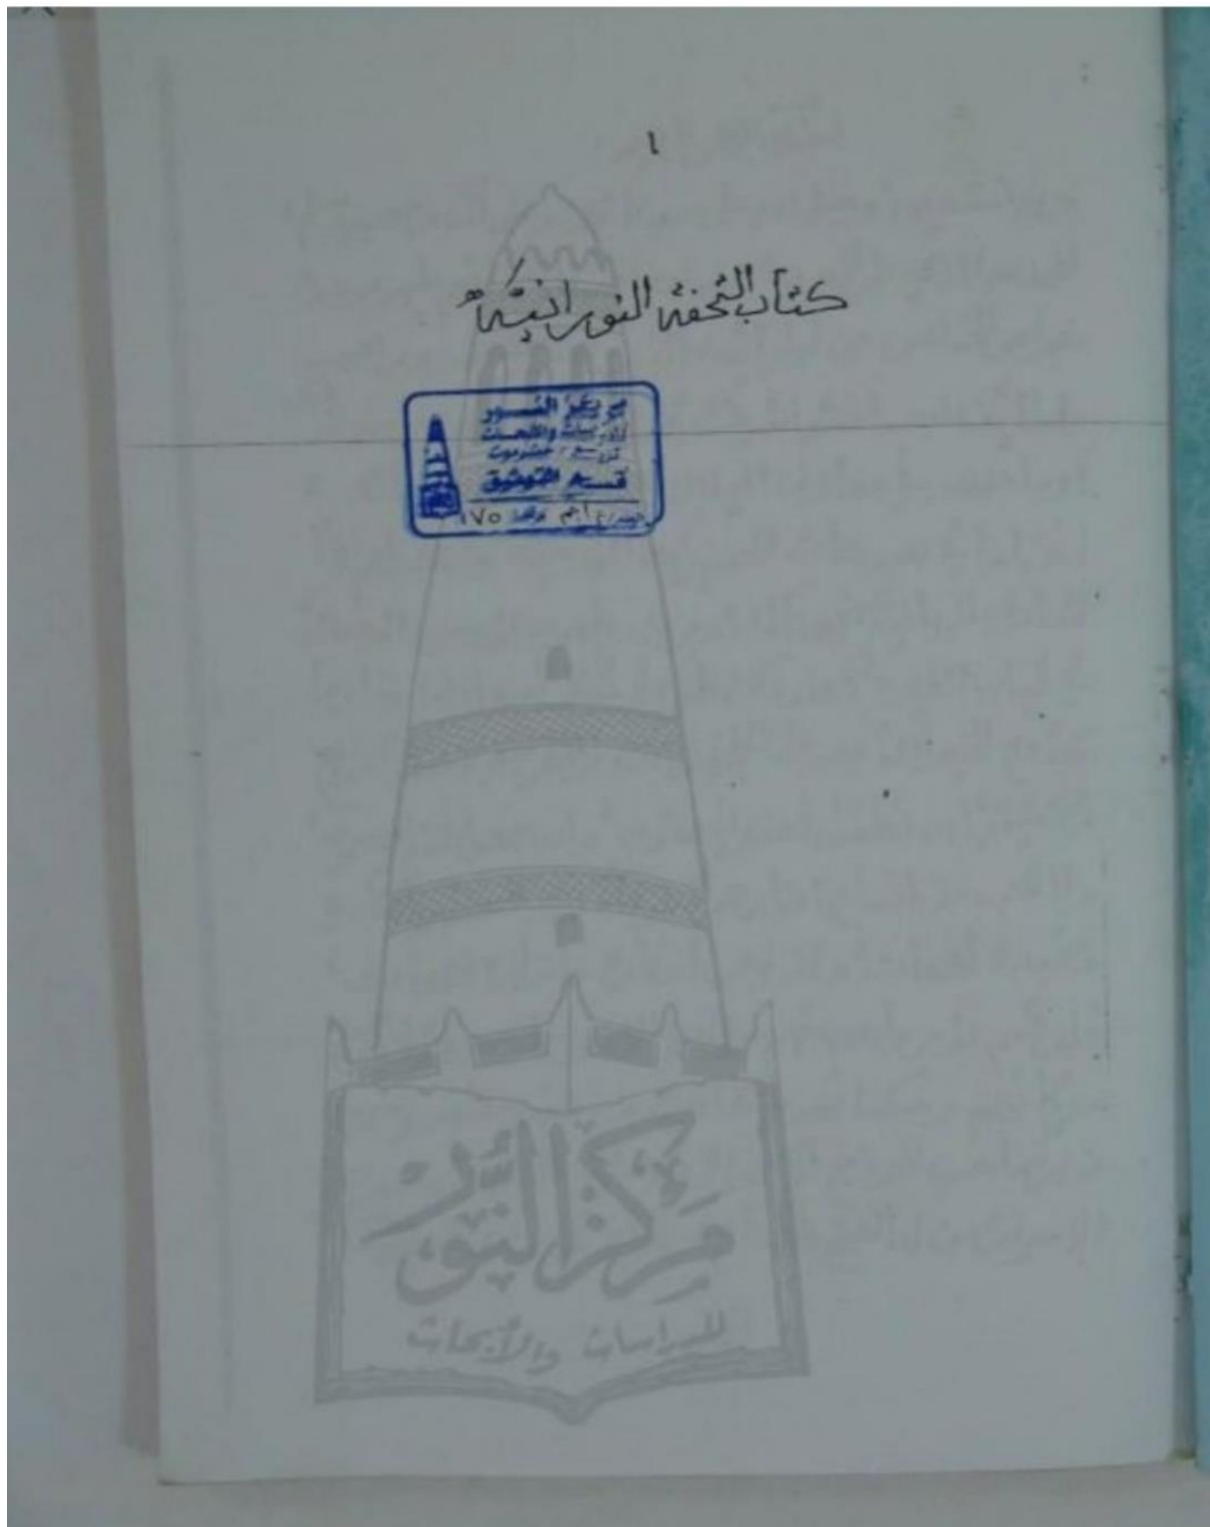 ١
كتاب التحفة النورانية
مركز النور
للدراسات والأبحاث
تريم / حضرموت
قسم التوثيق
رقم ١٧٥
مركز النور
للدراسات والأبحاث